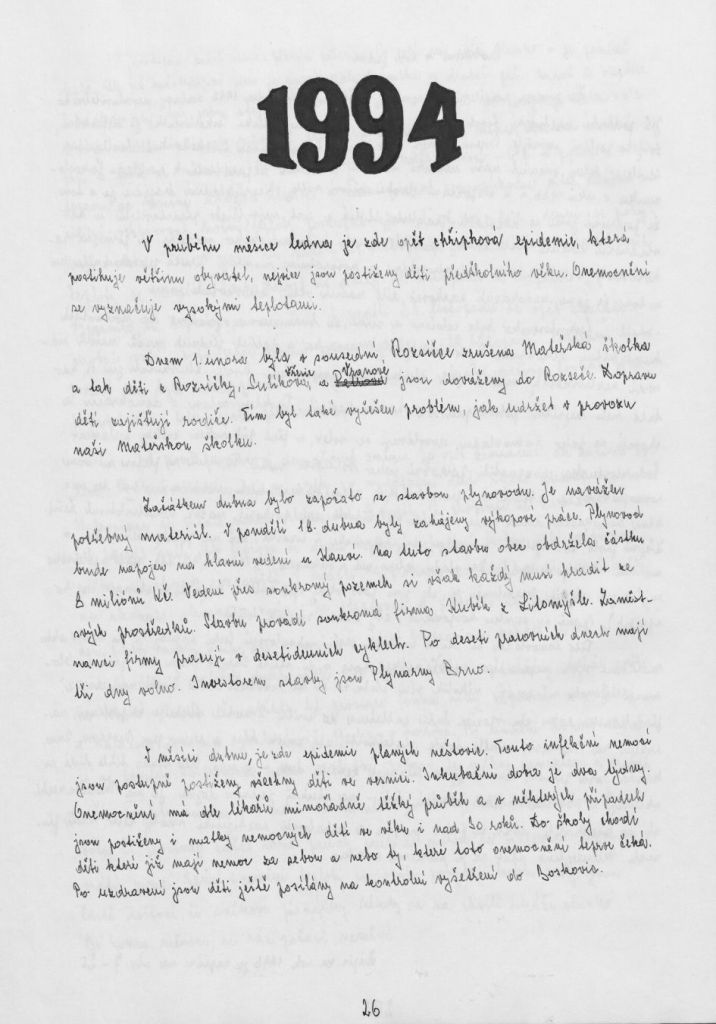 1994
V průběhu měsíce ledna je zde opět chřipková epidemie, která
postihuje většinu obyvatel, nejvíce jsou postiženy děti předškolního věku. Onemocnění
se vyznačuje vysokými teplotami.
Dnem 1. února byla v sousední Rozsíčce zrušena Mateřská školka
a tak děti z Rozsíčky, Sulíkova, a jsou dováženy do Rozseče. Dopravu
děti zajišťují rodiče. Tím byl také vyřešen problém, jak udržet v provozu
naši Mateřskou školku.
Začátkem dubna bylo započato se stavbou plynovodu. Je navážen
potřebný materiál. V pondělí 18. dubna byly zahájeny výkopové práce. Plynovod
bude napojen na hlavní vedení u Hamrí. Na tuto stavbu obec obdržela částku
8 miliónů Kč. Vedení přes soukromý pozemek si však každý musí hradit ze
svých prostředků. Stavbu provádí soukromá firma Kubík z Litomyšle. Zaměst-
nanci firmy pracují v desetidenních cyklech. Po deseti pracovních dnech mají
tři dny volno. Investorem stavby jsou Plynárny Brno.
V měsíci dubnu, je zde epidemie planých neštovic. Touto infekční nemocí
jsou postupně postiženy všechny děti ve vesnici. Inkubační doba je dva týdny.
Onemocnění má dle lékařů mimořádně těžký průběh a v některých případech
jsou postiženy i matky nemocných dětí ve věku i nad 30 roků. Do školy chodí
děti které již mají nemoc za sebou a nebo ty, které toto onemocnění teprve čeká.
Po uzdravení jsou děti ještě posílány na kontrolní vyšetření do Boskovic.
26